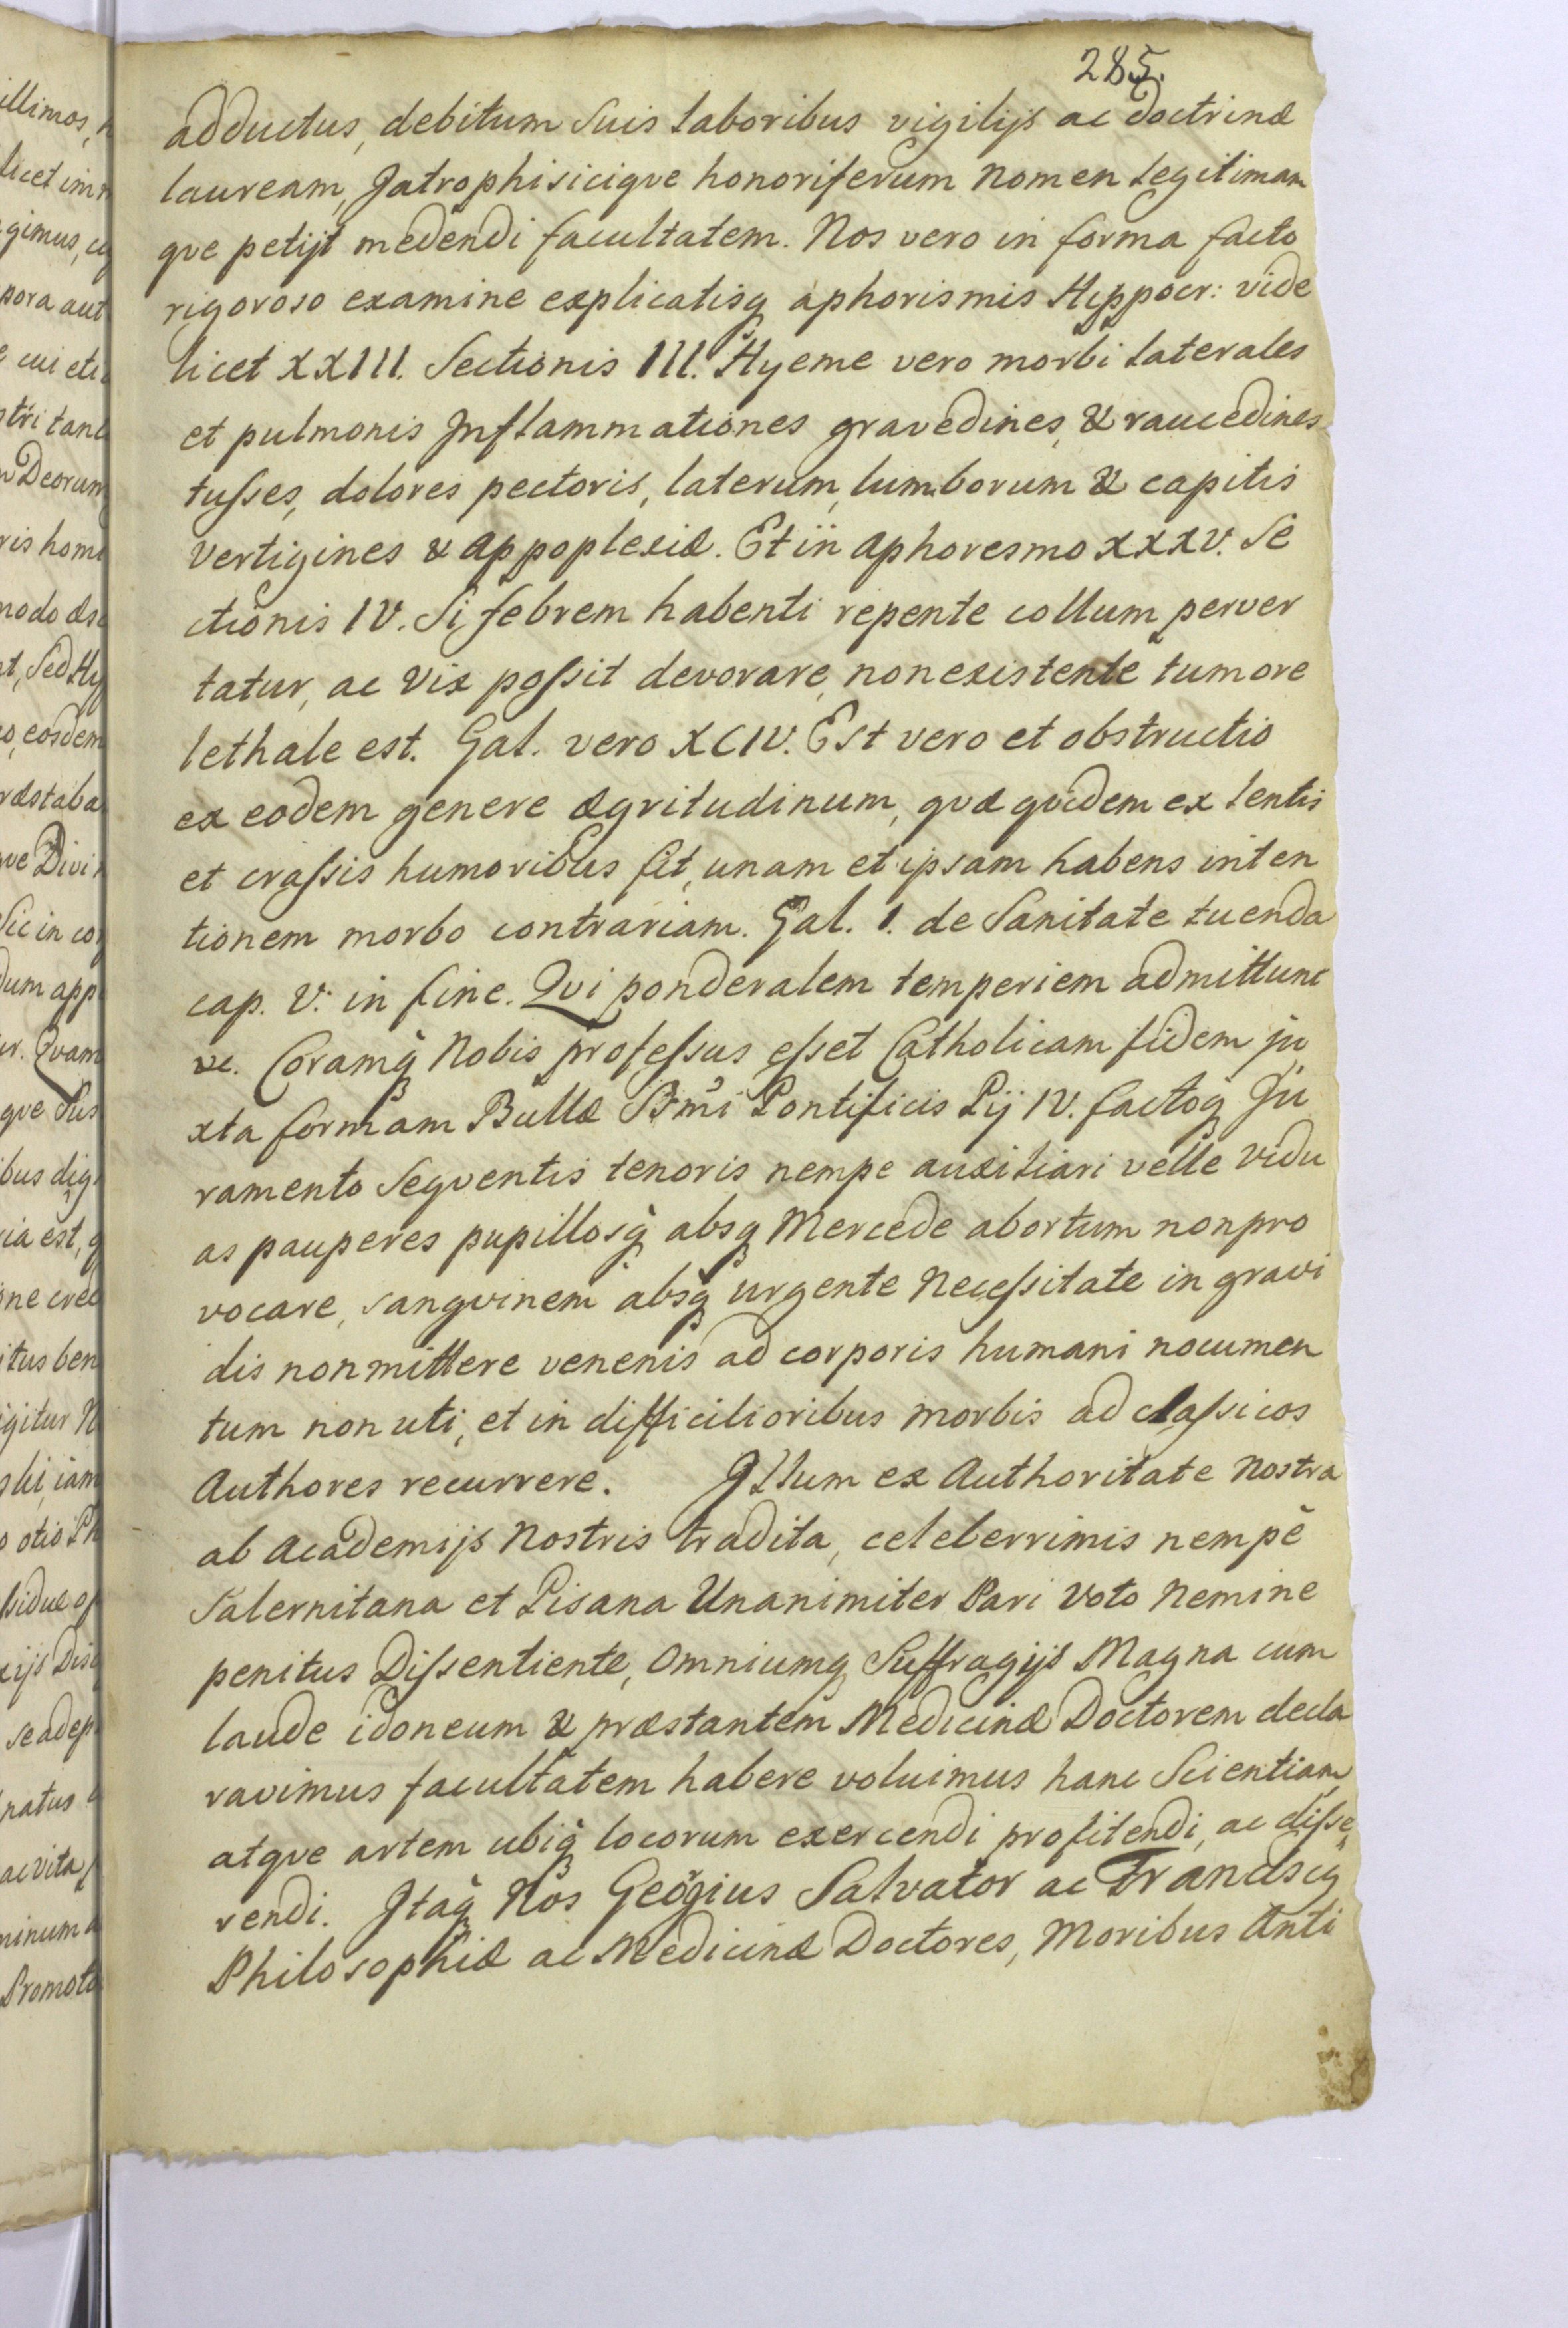 285.
adductus, debitum suis laboribus vigilijs ac doctrinæ
lauream, Jatrophisicique honoriferum Nomen legitimam
que petijt medendi facultatem. Nos vero in forma facto
rigoroso examine explicatisq aphorismis Hyppocr: vide
licet XXIII. Sectionis III. Hyeme vero morbi laterales
et pulmonis Inflammationes gravedines, & raucedines
tusses, dolores pectoris, laterum, lumborum & capitis
vertigines & appoplexiæ. Et in aphoresmo XXXV. Se
ctionis IV. Si febrem habenti repente collum perver
tatur, ac vix possit devorare, non existente tumore
lethale est. Gal. vero XCIV. Est vero et obstructio
ex eodem genere ægritudinum, quæ quidem ex lentis
et crassis humoribus fit, unam et ipsam habens inten
tionem morbo contrariam. Gal. I. de Sanitate tuenda
cap. V. in fine. Qui ponderalem temperiem admittunt
ve. Coramq̃ Nobis professus esset Catholicam fidem ju
xta formam Bullæ Ssmi Pontificis Pij IV. factoq Ju
ramento sequentis tenoris nempe auxiliari velle vidu
as pauperes pupillosq̃ absq Mercede abortum non pro
vocare, sanguinem absq̃ urgente Necessitate in gravi
dis non mittere venenis ad corporis humani nocumen
tum non uti, et in difficilioribus morbis ad classicos
Authores recurrere. Illum ex Authoritate Nostra
ab Academijs Nostris tradita, celeberrimis nempè
Salernitana et Pisana Unanimiter Pari Voto Nemine
penitus Dissentiente, Omniumq Suffragijs Magna cum
laude idoneum & præstantem Medicinæ Doctorem decla
ravimus facultatem habere voluimus hanc Scientiam
atque artem ubiq̃ locorum exercendi profitendi, ac disse
rendi. Itaq̃ Nos Geõgius Salvator ac Franciscq
Philosophiæ ac Medicinæ Doctores, Moribus Anti